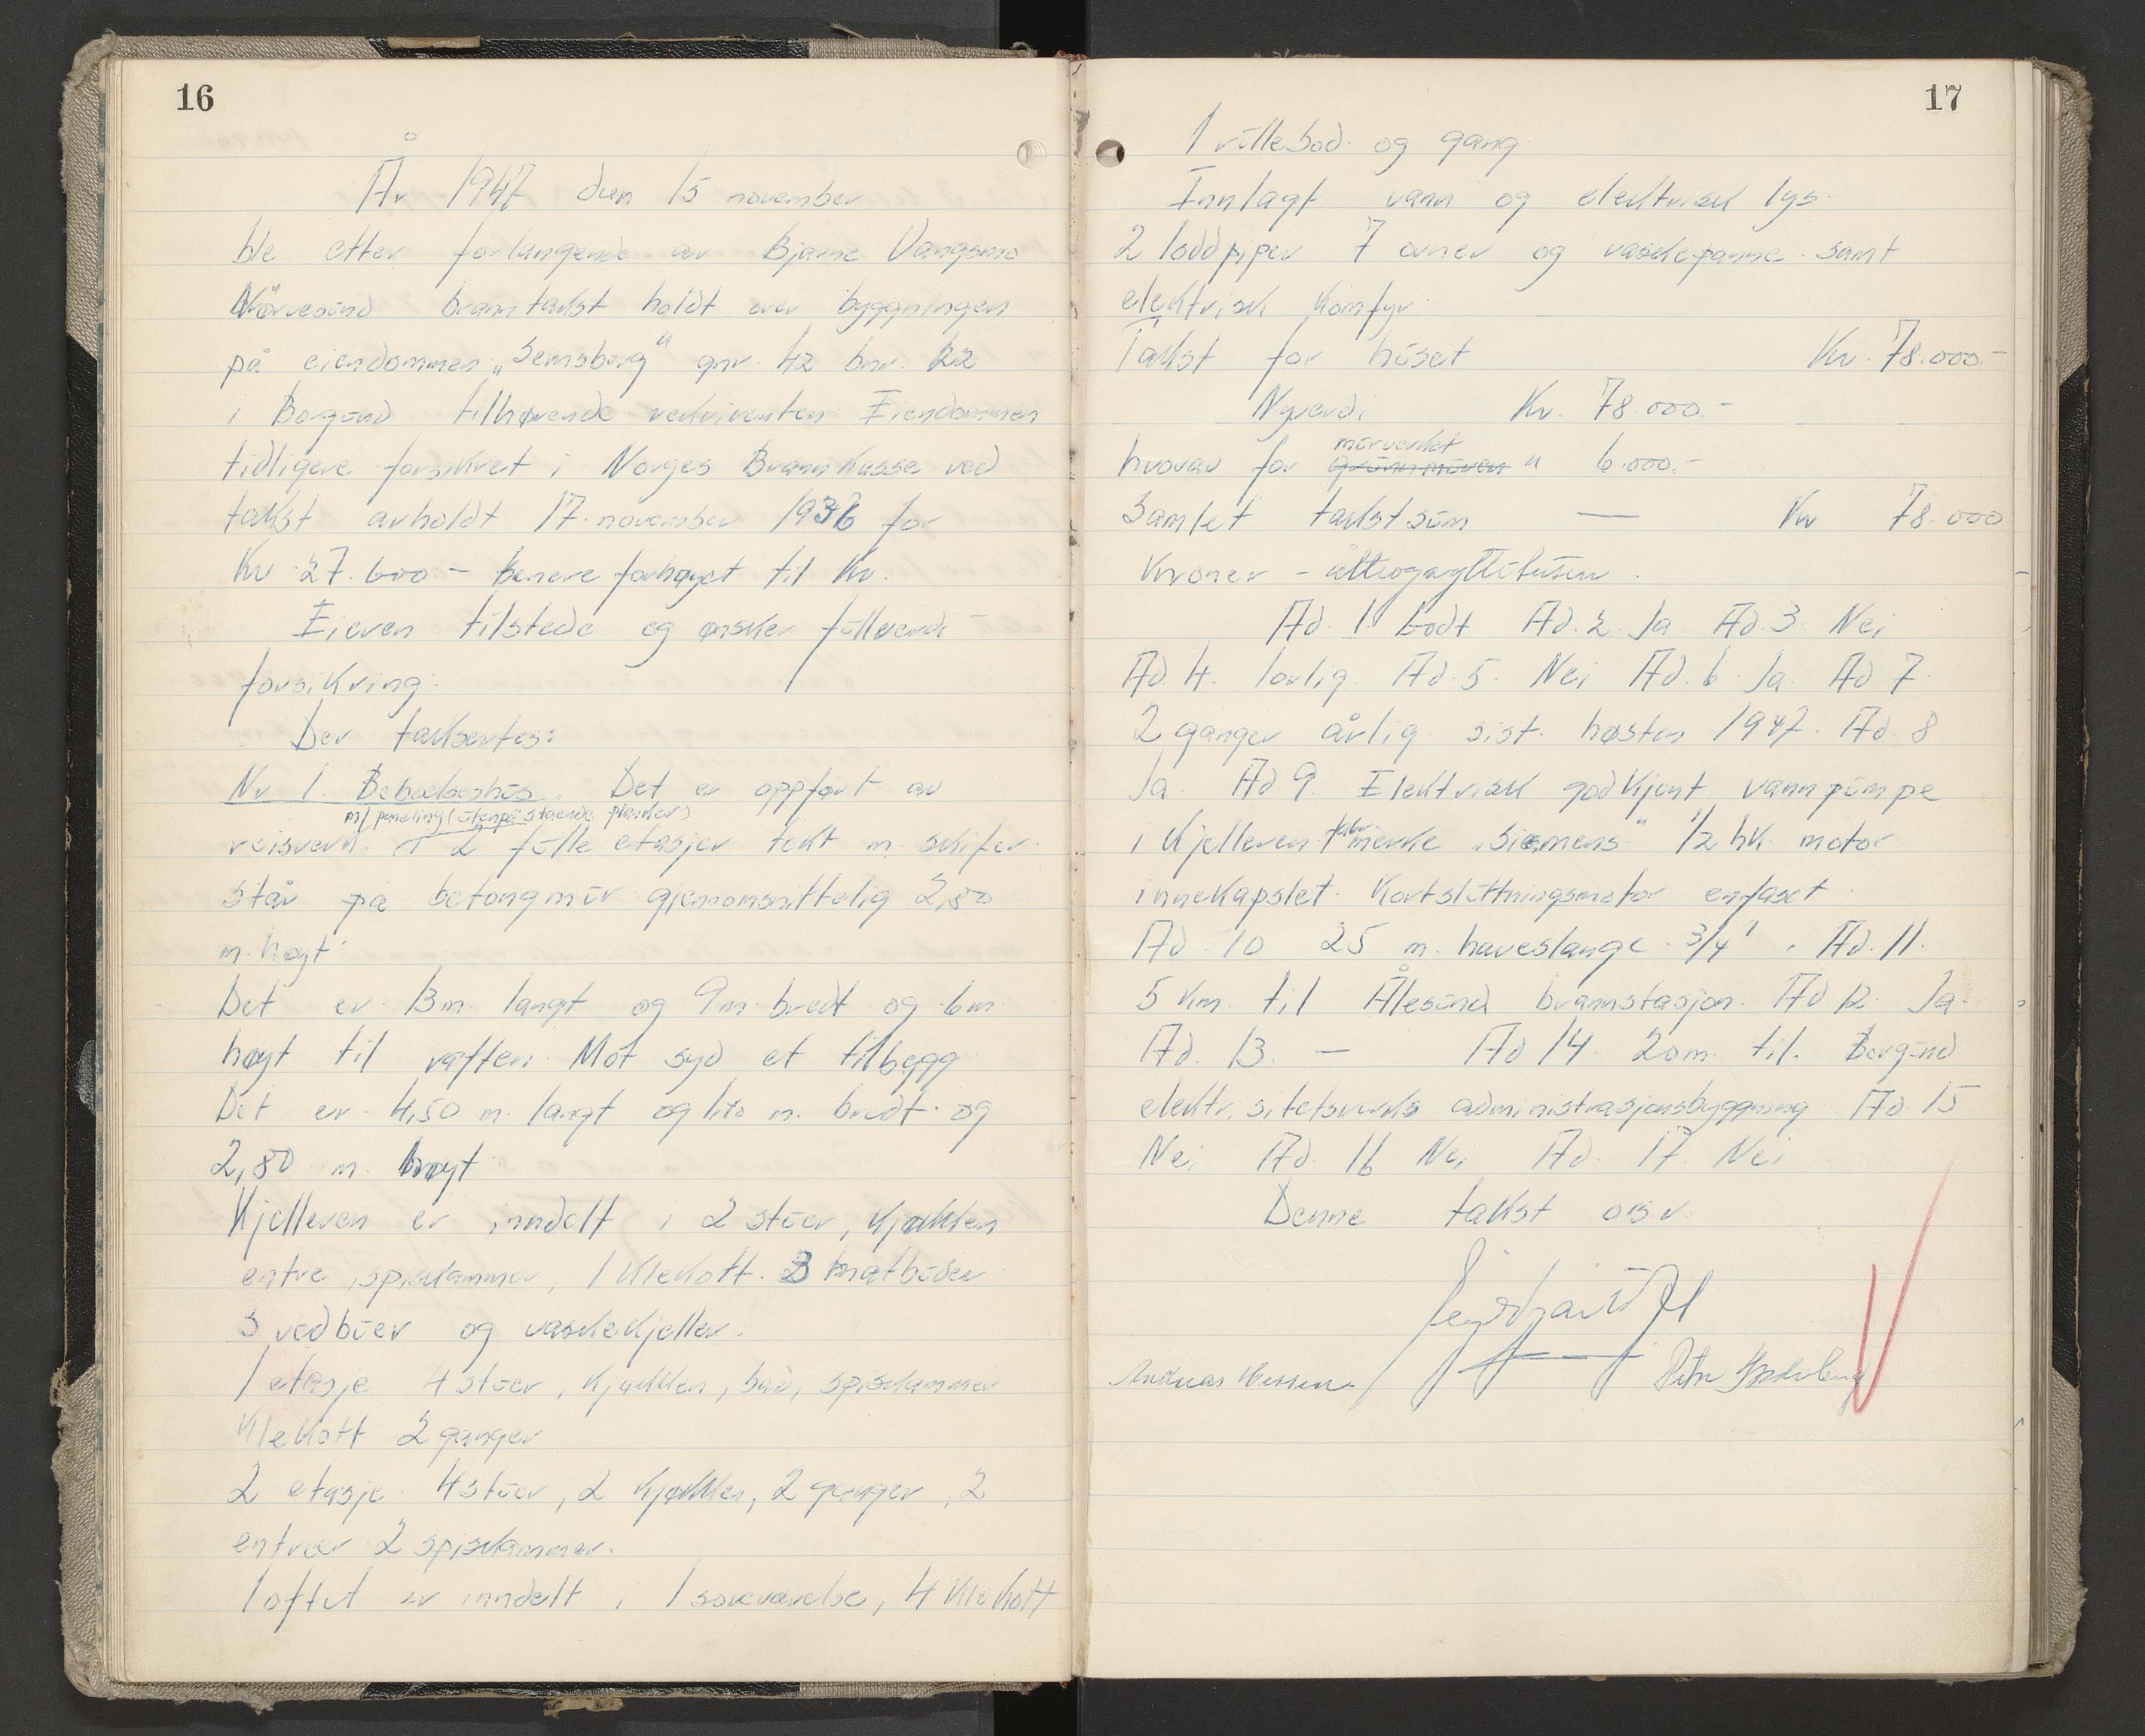 16
År 1947 den 15 november
ble etter forlangende av Bjarne Vangsmo
Nørvesund branntakst holdt over byggningen
på eiendommen "Semsborg" gnr. 42 bnr. 22
i Borgund tilhørende rekvirenten Eiendommen
tidligere forsikret i Norges Brannkasse ved
takst avholdt 17. november 1936 for
Kr 27.600.- senere forhøyet til Kr.
Eieren tilstede og ønsker fullverdi-
forsikring.
Der taksertes:
Nr 1. Beboelseshus. Det er oppført av
m/ paneling (utenpå stående planker)
reisverk i 2 fulle etasjer tekt m. skifer
står på betongmur gjennomsnittelig 2,80
m. høyt
Det er 13 m. langt og 9 m. bredt og 6 m
høyt til raften. Mot syd et tilbygg
Det er 4,50 m. langt og m. bredt og
2,80 m. høyt
Kjelleren er inndelt i 2 stuer, kjøkken
entre, spiskammer, 1 klekott. 3 matboder
3 vedbuer og vaskekjeller.
1 etasje 4 stuer, kjøkken, bad, spiskammer
klekott 2 ganger
2 etasje 4 stuer, 2 kjøkken, 2 ganger, 2
entreer 2 spiskammer.
loftet er inndelt i 1 soveværelse, 4 klekott
17
1 rullebod og gang.
Innlagt vann og elektrisk lys.
2 loddpiper 7 ovner og vaskepanne samt
elektrisk komfyr
Takst for huset Kr. 78.000.-
Nyverdi Kr. 78.000.-
murverket
hvorav for grunnmuren " 6.000.-
Samlet takstsum — Kr 78.000
Kroner - åttiogsyttitusen.
Ad. 1. Godt Ad. 2 Ja Ad. 3. Nei
Ad. 4. lovlig. Ad. 5. Nei Ad. 6. Ja. Ad. 7.
2 ganger årlig sist høsten 1947. Ad 8
Ja. Ad 9. Elektrisk godkjent vannpumpe
i kjelleren fabr. merke "Siemens" 1/2 hk. motor
innekapslet. Kortsluttningsmotor enfaset.
Ad. 10 25 m. haveslange 3/4". Ad. 11.
5 km. til Ålesund brannstasjon. Ad 12. Ja.
Ad. 13. — Ad 14. 20 m. til Borgund
elektrisitetsverks administrasjonsbyggning Ad 15
Nei Ad. 16 Nei Ad. 17. Nei
Denne takst osv.
Andreas Petter